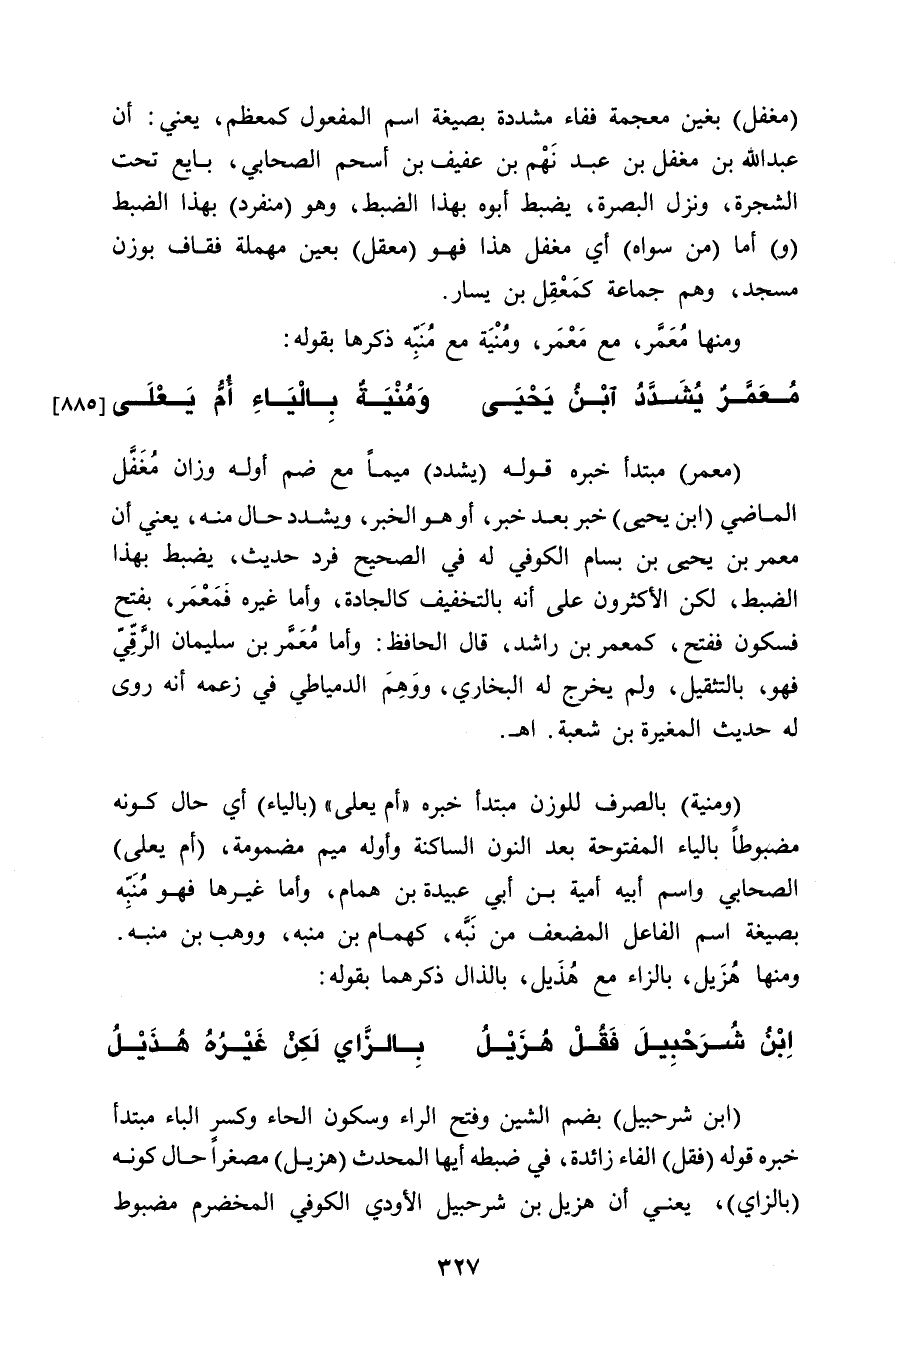 (مغفل) بغين معجمة ففاء مشددة بصيغة اسم المفعول كمعظم، يعني: أن
عبدالله بن مغفل بن عبد نَهْم بن عفيف بن أسحم الصحابي، بايع تحت
الشجرة، ونزل البصرة، يضبط أبوه بهذا الضبط، وهو (منفرد) بهذا الضبط
(و) أما (من سواه) أي مغفل هذا فهو (معقل) بعين مهملة فقاف بوزن
مسجد، وهم جماعة كمَعْقِل بن يسار.
ومنها مُعَمَّر، مع مَعْمَر، ومُنْيَة مع مُنَبِّه ذكرها بقوله:
مُعَمَّرٌ يُشَدَّدُ آبْنُ يَحْيَى وَمُنْيَةٌ بِالْيَاءِ أُمُّ يَعْلَى [٨٨٥]
(معمر) مبتدأ خبره قوله (يشدد) ميماً مع ضم أوله وزان مُغَفَّل
الماضي (ابن يحيى) خبر بعد خبر، أو هو الخبر، ويشدد حال منه، يعني أن
معمر بن يحيى بن بسام الكوفي له في الصحيح فرد حديث، يضبط بهذا
الضبط، لكن الأكثرون على أنه بالتخفيف كالجادة، وأما غيره فَمَعْمَر، بفتح
فسكون ففتح، كمعمر بن راشد، قال الحافظ: وأما مُعَمَّر بن سليمان الرَّقِّيّ
فهو، بالتثقيل، ولم يخرج له البخاري، ووَهِمَ الدمياطي في زعمه أنه روى
له حديث المغيرة بن شعبة. اهـ.
(ومنية) بالصرف للوزن مبتدأ خبره «أم يعلى» (بالياء) أي حال كونه
مضبوطاً بالياء المفتوحة بعد النون الساكنة وأوله ميم مضمومة، (أم يعلى)
الصحابي واسم أبيه أمية بن أبي عبيدة بن همام، وأما غيرها فهو مُنَبِّه
بصيغة اسم الفاعل المضعف من نَبَّه، كهمام بن منبه، ووهب بن منبه.
ومنها هُزَيل، بالزاء مع هُذَيل، بالذال ذكرهما بقوله:
اِبْنُ شُرَحْبِيلَ فَقُلْ هُزَيْلُ بِالزَّايِ لَكِنْ غَيْرُهُ هُذَيْلُ
(ابن شرحبيل) بضم الشين وفتح الراء وسكون الحاء وكسر الباء مبتدأ
خبره قوله (فقل) الفاء زائدة، في ضبطه أيها المحدث (هزيل) مصغراً حال كونه
(بالزاي)، يعني أن هزيل بن شرحبيل الأودي الكوفي المخضرم مضبوط
٣٢٧